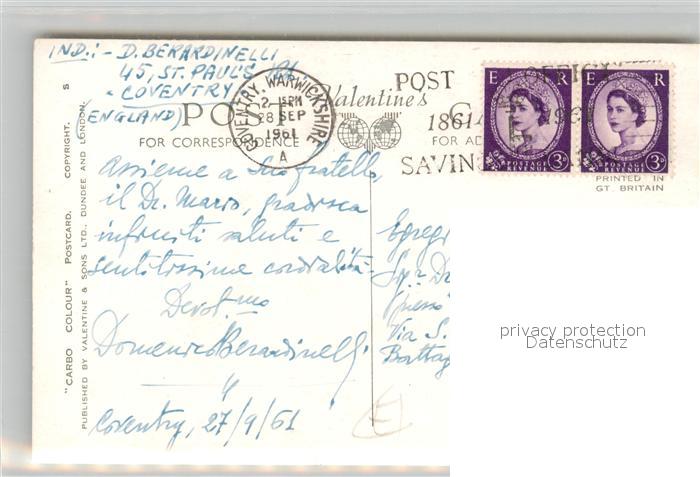 IND.:- D. BERARDINELLI
45, ST. PAUL'S Rd.
- COVENTRY
(ENGLAND)
COVENTRY. WARWICKSHIRE
2. 15PM
28 SEP
1961
A
PO
Valentine's
POST OFFICE
1861 1961
SAVINGS
FOR CORRESPONDENCE
FOR AD
E R
POSTAGE
REVENUE
3D
E R
POSTAGE
REVENUE
3D
PRINTED IN
GT. BRITAIN
Assieme a Suo fratello,
il Dr. Mario, gradisca
infiniti saluti e
sentitissime cordialità.
Devot.mo
Domenico Berardinelli
Coventry, 27/9/61
Egregi
Sig. Do
Via S.
Battag
"CARBO COLOUR" POSTCARD. COPYRIGHT. S
PUBLISHED BY VALENTINE & SONS LTD., DUNDEE AND LONDON.
privacy protection
Datenschutz